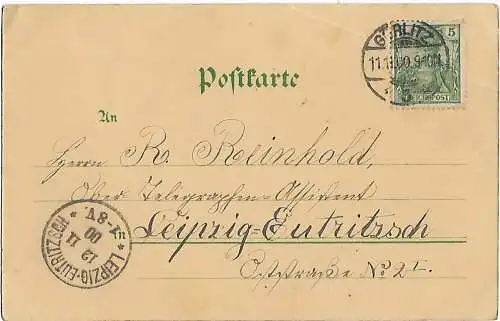 GÖRLITZ
11.11.00.9-10N
5
REICHSPOST
Postkarte
An
Herrn R. Reinhold,
Ober Telegraphen-Assistent
in Leipzig-Eutritzsch
Oststraße No. 2 I.
* LEIPZIG-EUTRITZSCH *
12 11
00
7-8V.